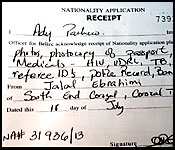 NATIONALITY APPLICATION
RECEIPT
739
Ady Pacheco
Officer for Belize acknowledge receipt of Nationality application
photos, photocopy of Passport
Medicals - HIV, VDRL, TB,
referee ID's, Police Record, Ban
From Jalal Ebrahimi
of South End Corozal, Corozal T
Dated this 18 day
NA# 31936/13
Signature